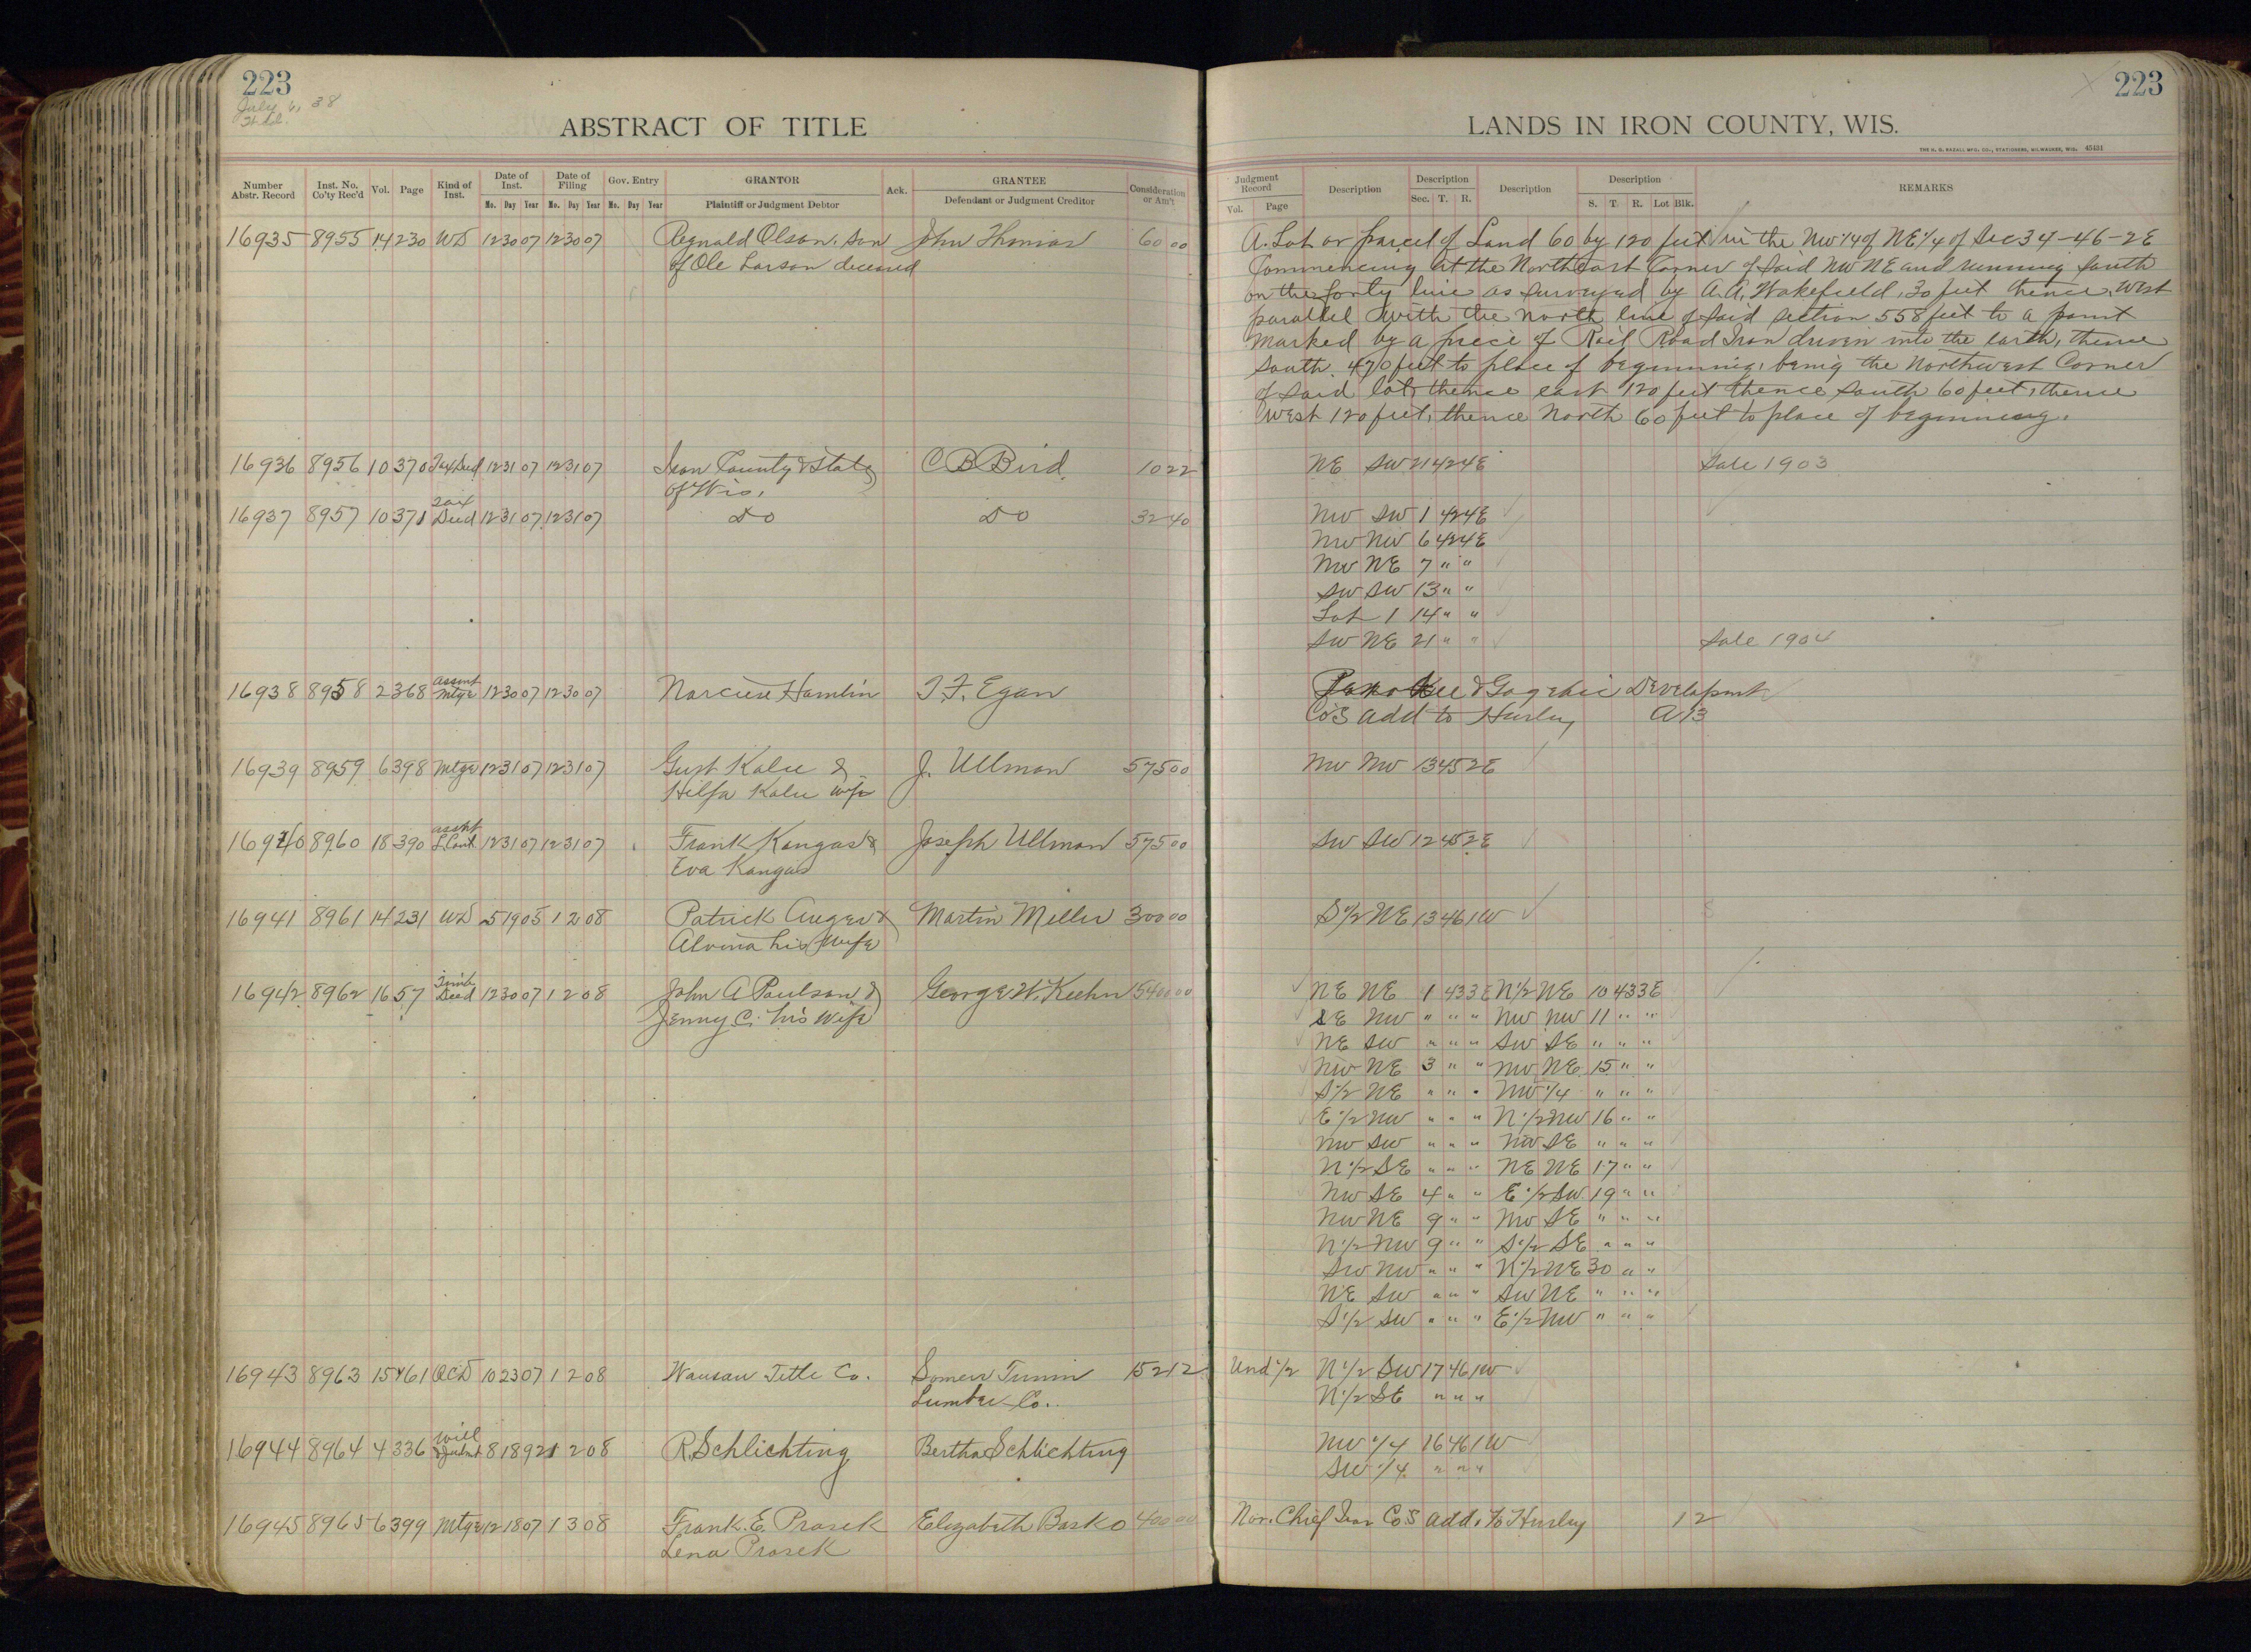 223
July 6, 38
ABSTRACT OF TITLE
Number Abstr. Record | Inst. No. Co'ty Rec'd | Vol. | Page | Kind of Inst. | Date of Inst. Mo. Day Year | Date of Filing Mo. Day Year | Gov. Entry Mo. Day Year | GRANTOR Plaintiff or Judgment Debtor | Ack. | GRANTEE Defendant or Judgment Creditor | Consideration or Am't
16935 8955 14 230 WD 12 30 07 12 30 07 Regnald Olson. son John 60 00
of Ole Larson deceased
16936 8956 10 370 Tax Deed 12 31 07 12 31 07 Iron County & State C B Bird 10 22
of Wis.
Tax
16937 8957 10 371 Deed 12 31 07 12 31 07 Do Do 32 40
assmt
16938 8958 2 368 Mtge 12 30 07 12 30 07 Narcisse Hamlin T. F. Egan
16939 8959 6 398 Mtge 12 31 07 12 31 07 Gust Kalu & J. Ullman 575 00
Hilfa Kalu wife
assmt
16940 8960 18 390 L Cont 12 31 07 12 31 07 Frank Kangas & Joseph Ullman 575 00
Eva Kangas
16941 8961 14 231 WD 5 19 05 1 2 08 Patrick Auger & Martin Miller 300 00
Alvina his Wife
16942 8962 16 57 Deed 12 30 07 1 2 08 John A Paulson & George W. Kuehn 5400 00
Jenny C. his Wife
16943 8963 15 461 QCD 10 23 07 1 2 08 Wausau Title Co. 152 12
Lumber Co.
will
16944 8964 4 336 8 18 92 1 2 08 R. Schlichting Bertha Schlichting
16945 8965 6 399 Mtge 12 18 07 1 3 08 Frank. E. Prosek Elizabeth Basko 400 00
Lena Prosek
X 223
LANDS IN IRON COUNTY, WIS.
THE H. G. RAZALL MFG. CO., STATIONERS, MILWAUKEE, WIS. 45431
Judgment Record Vol. Page | Description | Description Sec. T. R. | Description | Description S. T. R. Lot Blk. | REMARKS
A. Lot or parcel of Land 60 by 120 feet in the NW 1/4 of NE 1/4 of Sec 34-46-2E
Commencing at the Northeast Corner of said NW NE and running south
on the forty line as surveyed by A. A. Wakefield, 30 feet thence, West
parallel with the north line of said section 558 feet to a point
marked by a piece of Rail Road Iron driven into the earth, thence
south. 470 feet to place of beginning, being the Northwest Corner
of said lot, thence east 120 feet thence south 60 feet, thence
West 120 feet, thence North 60 feet to place of beginning.
NE SW 21 42 4E Sale 1903
NW SW 1 42 4E
NW NW 6 42 4E
NW NE 7 " "
SW SW 13 " "
Lot 1 14 " "
SW NE 21 " " Sale 1904
& Gogebic Development
Co's add to Hurley A 13
NW NW 13 45 2E
SW SW 12 45 2E
S 1/2 NE 13 46 1W
NE NE 1 43 3E N 1/2 NE 10 43 3E
SE NW " " " NW NW 11 " "
NE SW " " " SW SE " " "
NW NE 3 " " NW NE 15 " "
S 1/2 NE " " " NW 1/4 " " "
E 1/2 NW " " " N 1/2 NW 16 " "
NW SW " " " NW SE " " "
N 1/2 SE " " " NE NE 17 " "
NW SE 4 " " E 1/2 SW 19 " "
NW NE 9 " " NW SE " " "
N 1/2 NW 9 " " S 1/2 SE " " "
SW NW " " " N 1/2 NE 30 " "
NE SW " " " SW NE " " "
S 1/2 SW " " " E 1/2 NW " " "
Und 1/2 N 1/2 SW 17 46 1W
N 1/2 SE " " "
NW 1/4 16 46 1W
SW 1/4 " " "
Nor. Chief Iron Co's add. to Hurley 1 2